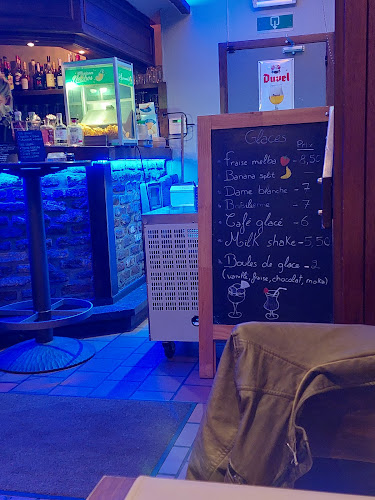 Duvel
Glaces
Prix
- Fraise melba - 8,50
- Banana split - 7
- Dame blanche - 7
- Brésilienne - 7
- Café glacé - 6
- Milk shake - 5,50
- Boules de glace - 2
(vanille, fraise, chocolat, moka)